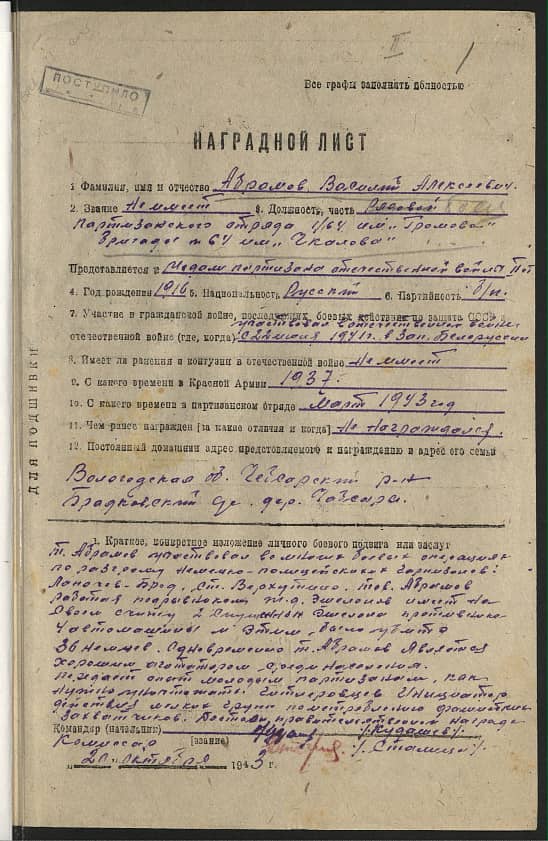 II
1
ПОСТУПИЛО
Все графы заполнять полностью
НАГРАДНОЙ ЛИСТ
1. Фамилия, имя и отчество Абрамов Василий Алексеевич.
2. Звание Не имеет 3. Должность, часть Рядовой
партизанского отряда 1/64 им. "Громова"
бригады №64 им "Чкалова"
Представляется к Медали партизана отечественной войны
4. Год рождения 1916 5. Национальность Русский 6. Партийность б/п.
7. Участие в гражданской войне, последующих боевых действиях по защите СССР и
участвовал в отечественной войне
отечественной войне (где, когда) с 22 июня 1941 г. в Зап. Белоруссии
8. Имеет ли ранения и контузии в отечественной войне Не имеет
9. С какого времени в Красной Армии 1937.
10. С какого времени в партизанском отряде Март 1943 год
11. Чем ранее награжден (за какие отличия и когда) Не награждался.
12. Постоянный домашний адрес представляемого к награждению и адрес его семьи
Вологодская об. р-н
дер.
ДЛЯ ПОДШИВКИ
1. Краткое, конкретное изложение личного боевого подвига или заслуг
т. Абрамов участвовал во многих боевых операциях
по разгрому немецко-полицейских гарнизонов:
ст. Верхутино. тов. Абрамов
работая подрывником ж.д. эшелонов имеет на
своем счету 2 эшелона противника
автомашины и этим было убито
36 немцев. Одновременно т. Абрамов является
хорошим агитатором среди населения.
передает опыт молодым партизанам, как
нужно уничтожать гитлеровцев. Инициатор
действия мелких групп по истреблению фашистских
захватчиков. Достоин правительственной награды
Командир (начальник) /Кудашев/
Комиссар (звание)
"20" октября 1943 г.